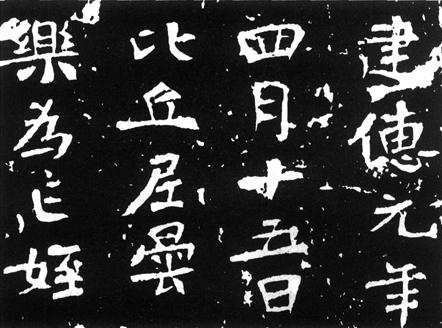 建德元年
四月十五日
比丘尼曇
樂為亡姪